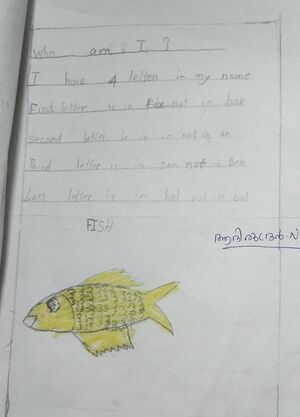 Who am I ?
I have 4 letters in my name
First letter is in fox not in box
Second letter is in in not in on
Third letter is in son not in Den
Last letter is in hot not in bat
FISH
ആദിരുദ്രൻ. N